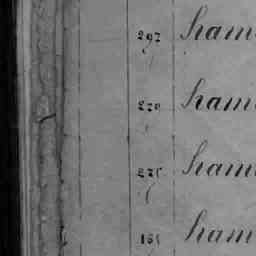 297 ham
270 ham
275 ham
161 ham